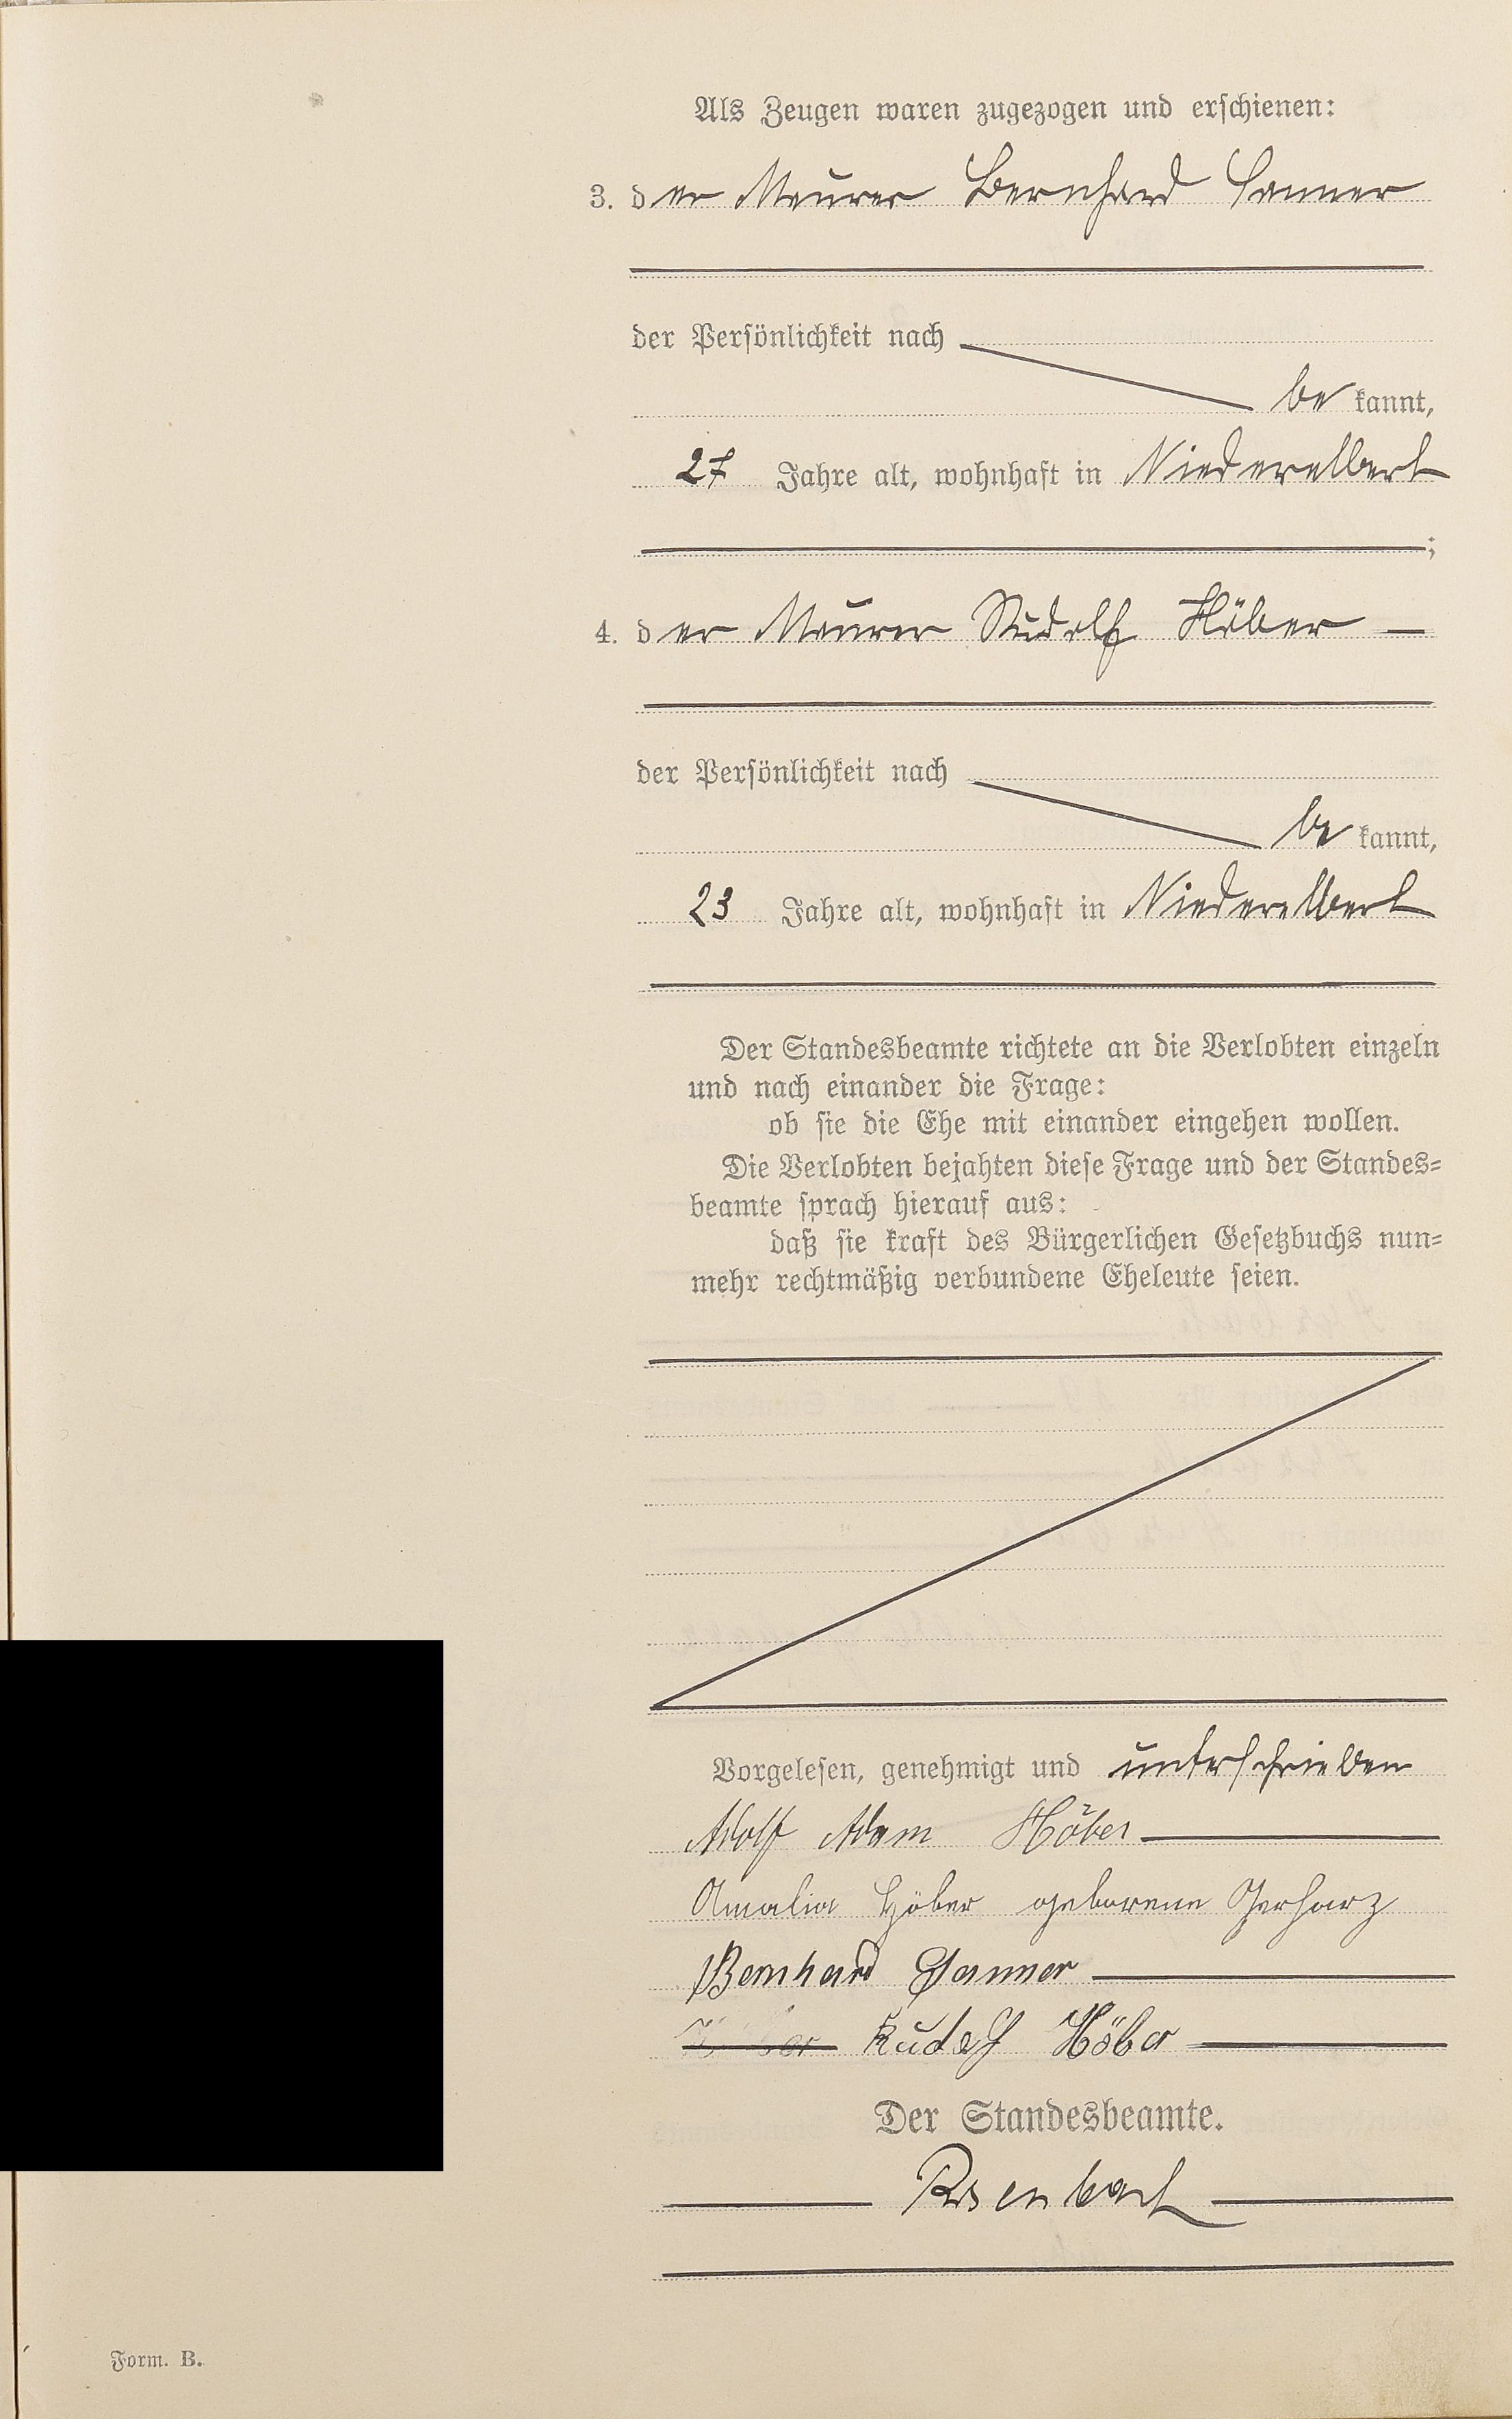 Als Zeugen waren zugezogen und erschienen:
3. der Maurer Bernhard Sanner
der Persönlichkeit nach
be kannt,
27 Jahre alt, wohnhaft in Niederelbert
;
4. der Maurer Rudolf Höber
der Persönlichkeit nach
be kannt,
23 Jahre alt, wohnhaft in Niederelbert
Der Standesbeamte richtete an die Verlobten einzeln
und nach einander die Frage:
ob sie die Ehe mit einander eingehen wollen.
Die Verlobten bejahten diese Frage und der Standes-
beamte sprach hierauf aus:
daß sie kraft des Bürgerlichen Gesetzbuchs nun-
mehr rechtmäßig verbundene Eheleute seien.
Vorgelesen, genehmigt und unterschrieben
Adolf Adam Höber
Amalia Höber geborene Gerharz
Bernhard Sanner
Rudolf Höber
Der Standesbeamte.
Rosenbach
Form. B.